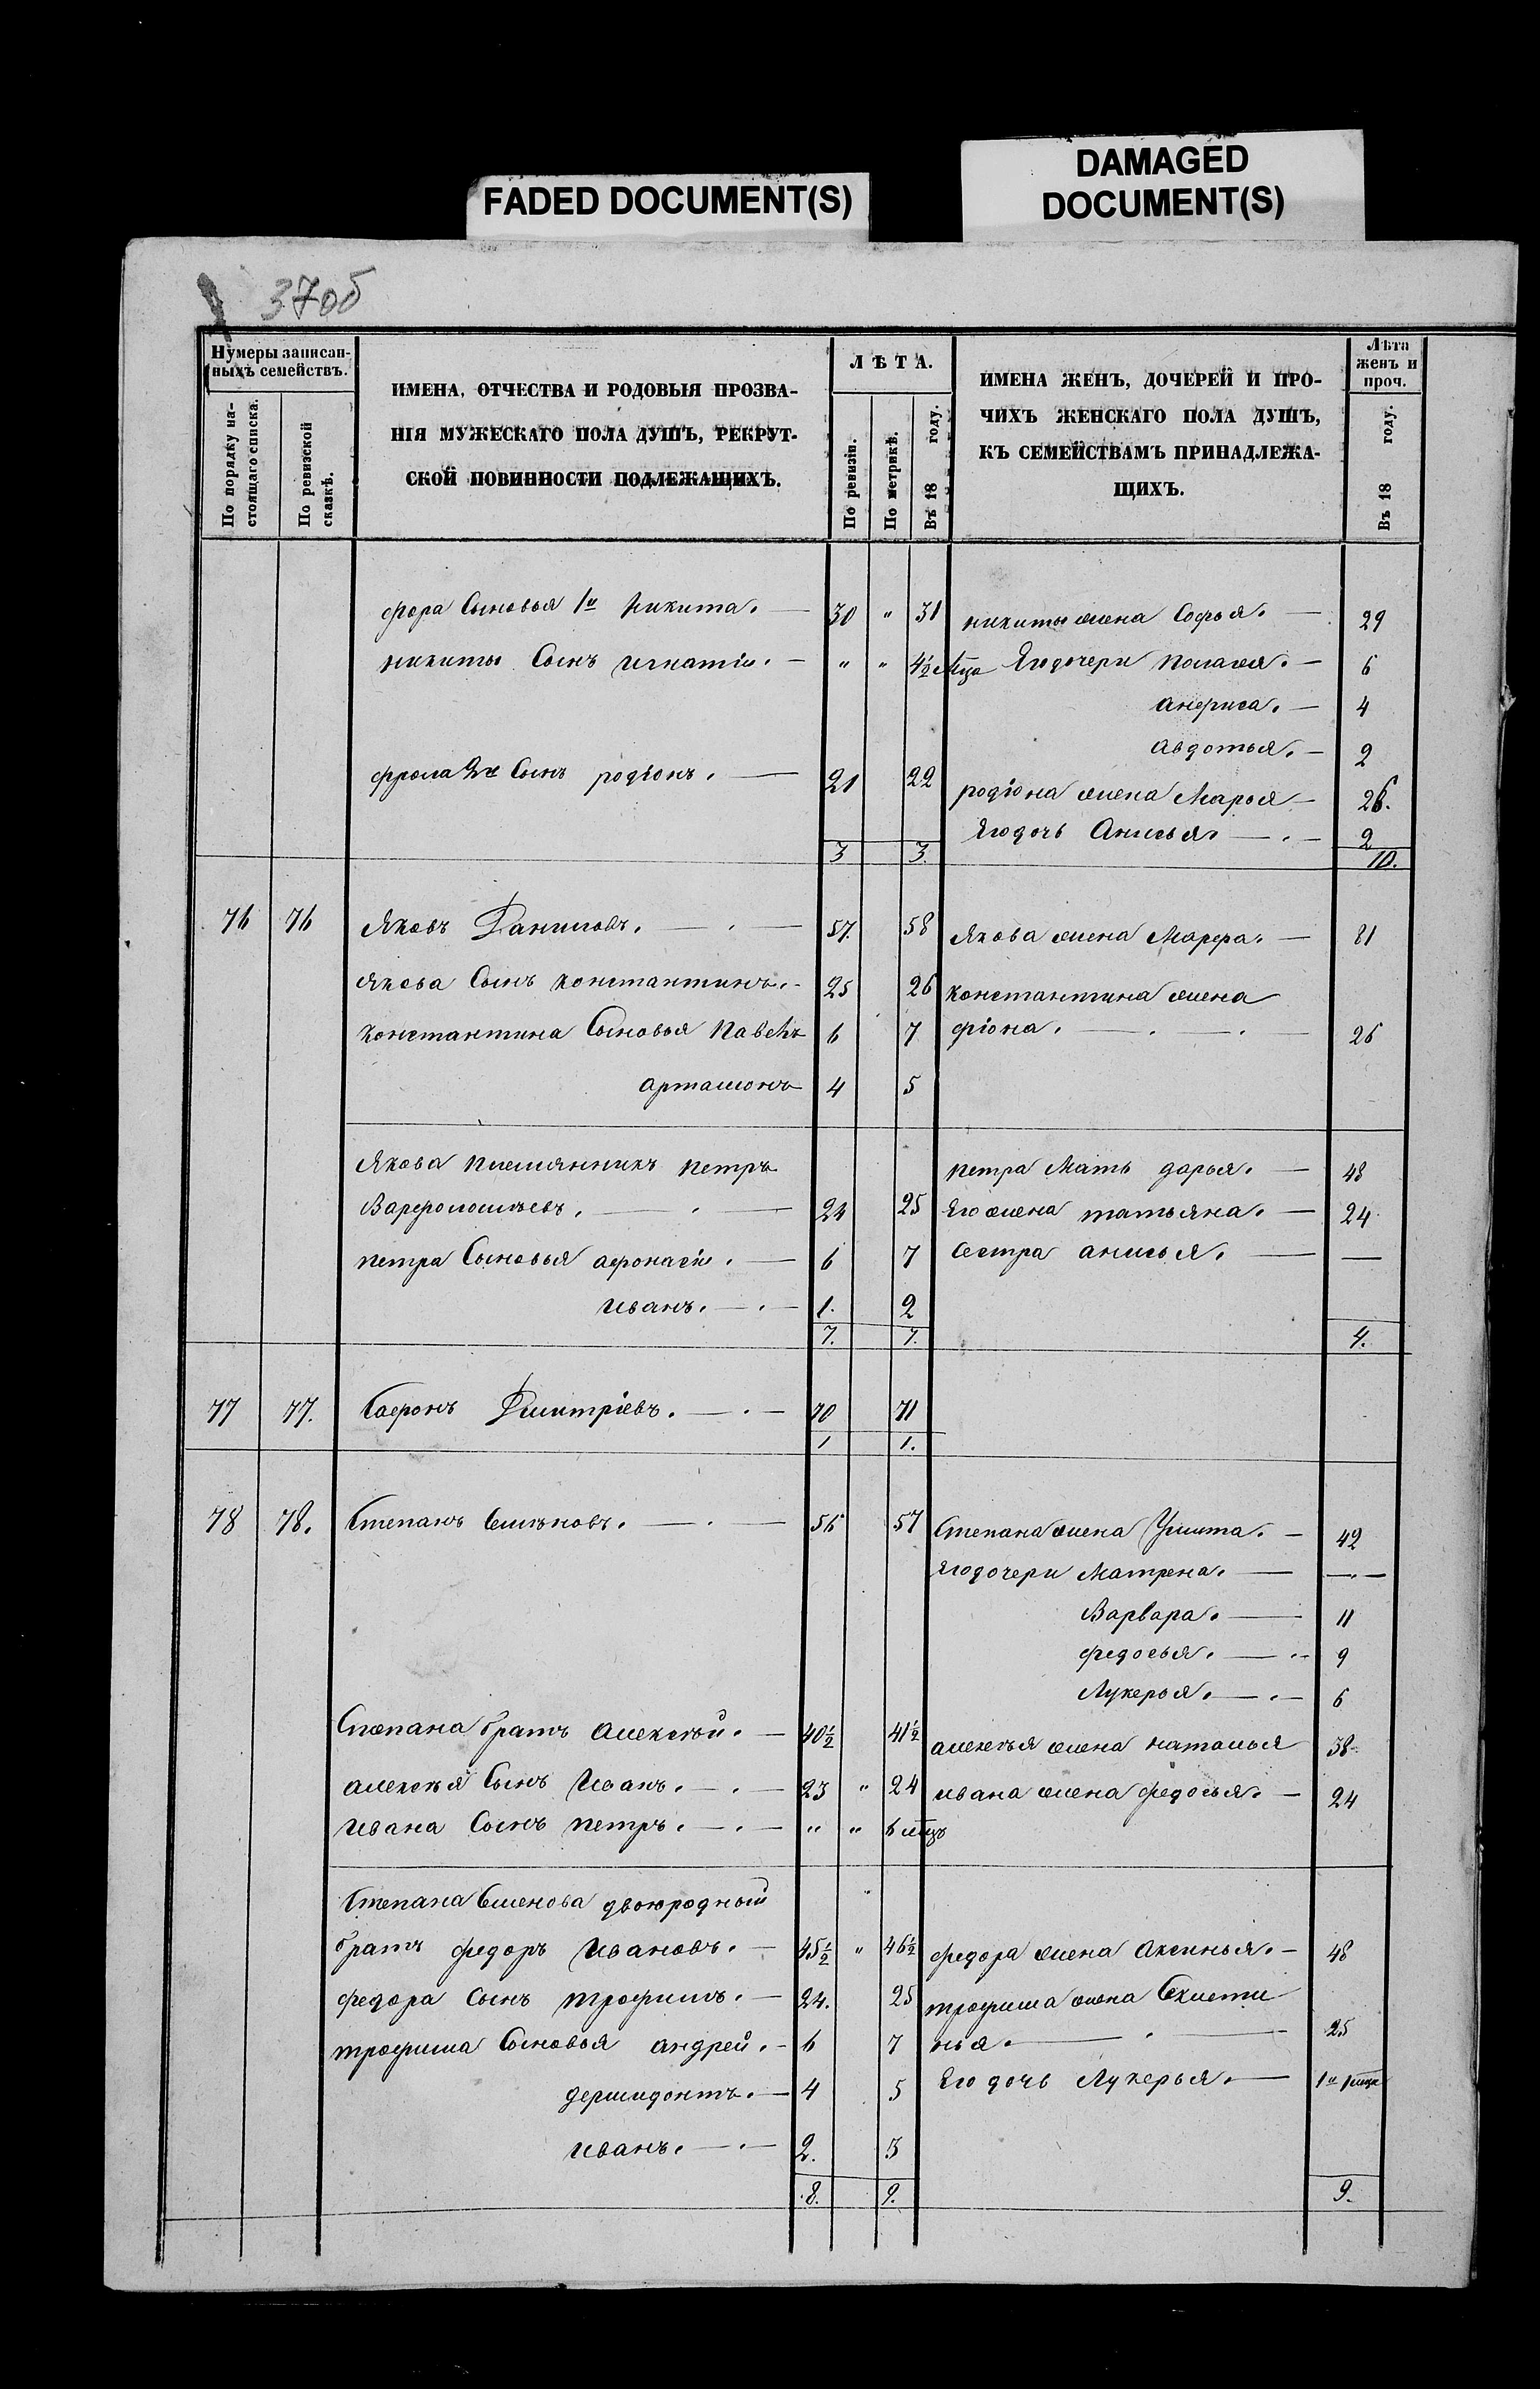 FADED DOCUMENT(S)
DAMAGED
DOCUMENT(S)
37об
Нумеры записан-
ныхъ семействъ.
По порядку на-
стоящаго списка.
По ревизской
сказкѣ.
ИМЕНА, ОТЧЕСТВА И РОДОВЫЯ ПРОЗВА-
НІЯ МУЖЕСКАГО ПОЛА ДУШЪ, РЕКРУТ-
СКОЙ ПОВИННОСТИ ПОДЛЕЖАЩИХЪ.
ЛѢТА.
По ревизіи.
По метрикѣ.
Въ 18 году.
ИМЕНА ЖЕНЪ, ДОЧЕРЕЙ И ПРО-
ЧИХЪ ЖЕНСКАГО ПОЛА ДУШЪ,
КЪ СЕМЕЙСТВАМЪ ПРИНАДЛЕЖА-
ЩИХЪ.
Лѣта
женъ и
проч.
Въ 18 году.
Сыновья 1й Никита. 30 " 31 никиты жена Софья. 29
никиты Сынъ игнатіи. " " 4½ мца Ягодочери 6
анфиса. 4
авдотья. 2
фрола 2й Сынъ родіонъ. 21 22 родіона жена Марья
Ягодочь Анисья. 2
3 3. 10.
76 76 Яковъ Даниловъ. 57. 58 Якова жена Марфа. 81
Якова Сынъ константинъ. 25 26 константина жена
константина Сыновья Павелъ 6 7 фіона. 26
артамонъ 4 5
Якова племянникъ петръ петра Мать дарья. 48
Варфоломѣевъ. 24 25 Его жена татьяна. 24
петра Сыновья афонасіи. 6 7 Сестра анисья. —
иванъ. 1. 2
7. 7. 4.
77 77. Сафронъ Дмитріевъ. 70 71
1 1.
78 78. Степанъ Семѣновъ. 56 57 Степана жена Улита. 42
Ягодочери Матрена. —
Варвара. 11
федосья. 9
Лукерья. 6
Степана братъ алексѣй. 40½ 41½ алексѣя жена наталья 38
алексѣя Сынъ Иванъ. 23 " 24 ивана жена федосья. 24
Ивана Сынъ петръ. " " 6 мцъ
Степана Семенова двоюродный
братъ федоръ Ивановъ. 45½ " 46½ федора жена аксинья. 48
федора Сынъ трофимъ. 24. 25 трофима жена
трофима Сыновья андрей. 6 7 нья. 25
дермидонтъ. 4 5 Его дочь Лукерья.
иванъ. 2. 3
8. 9. 9.